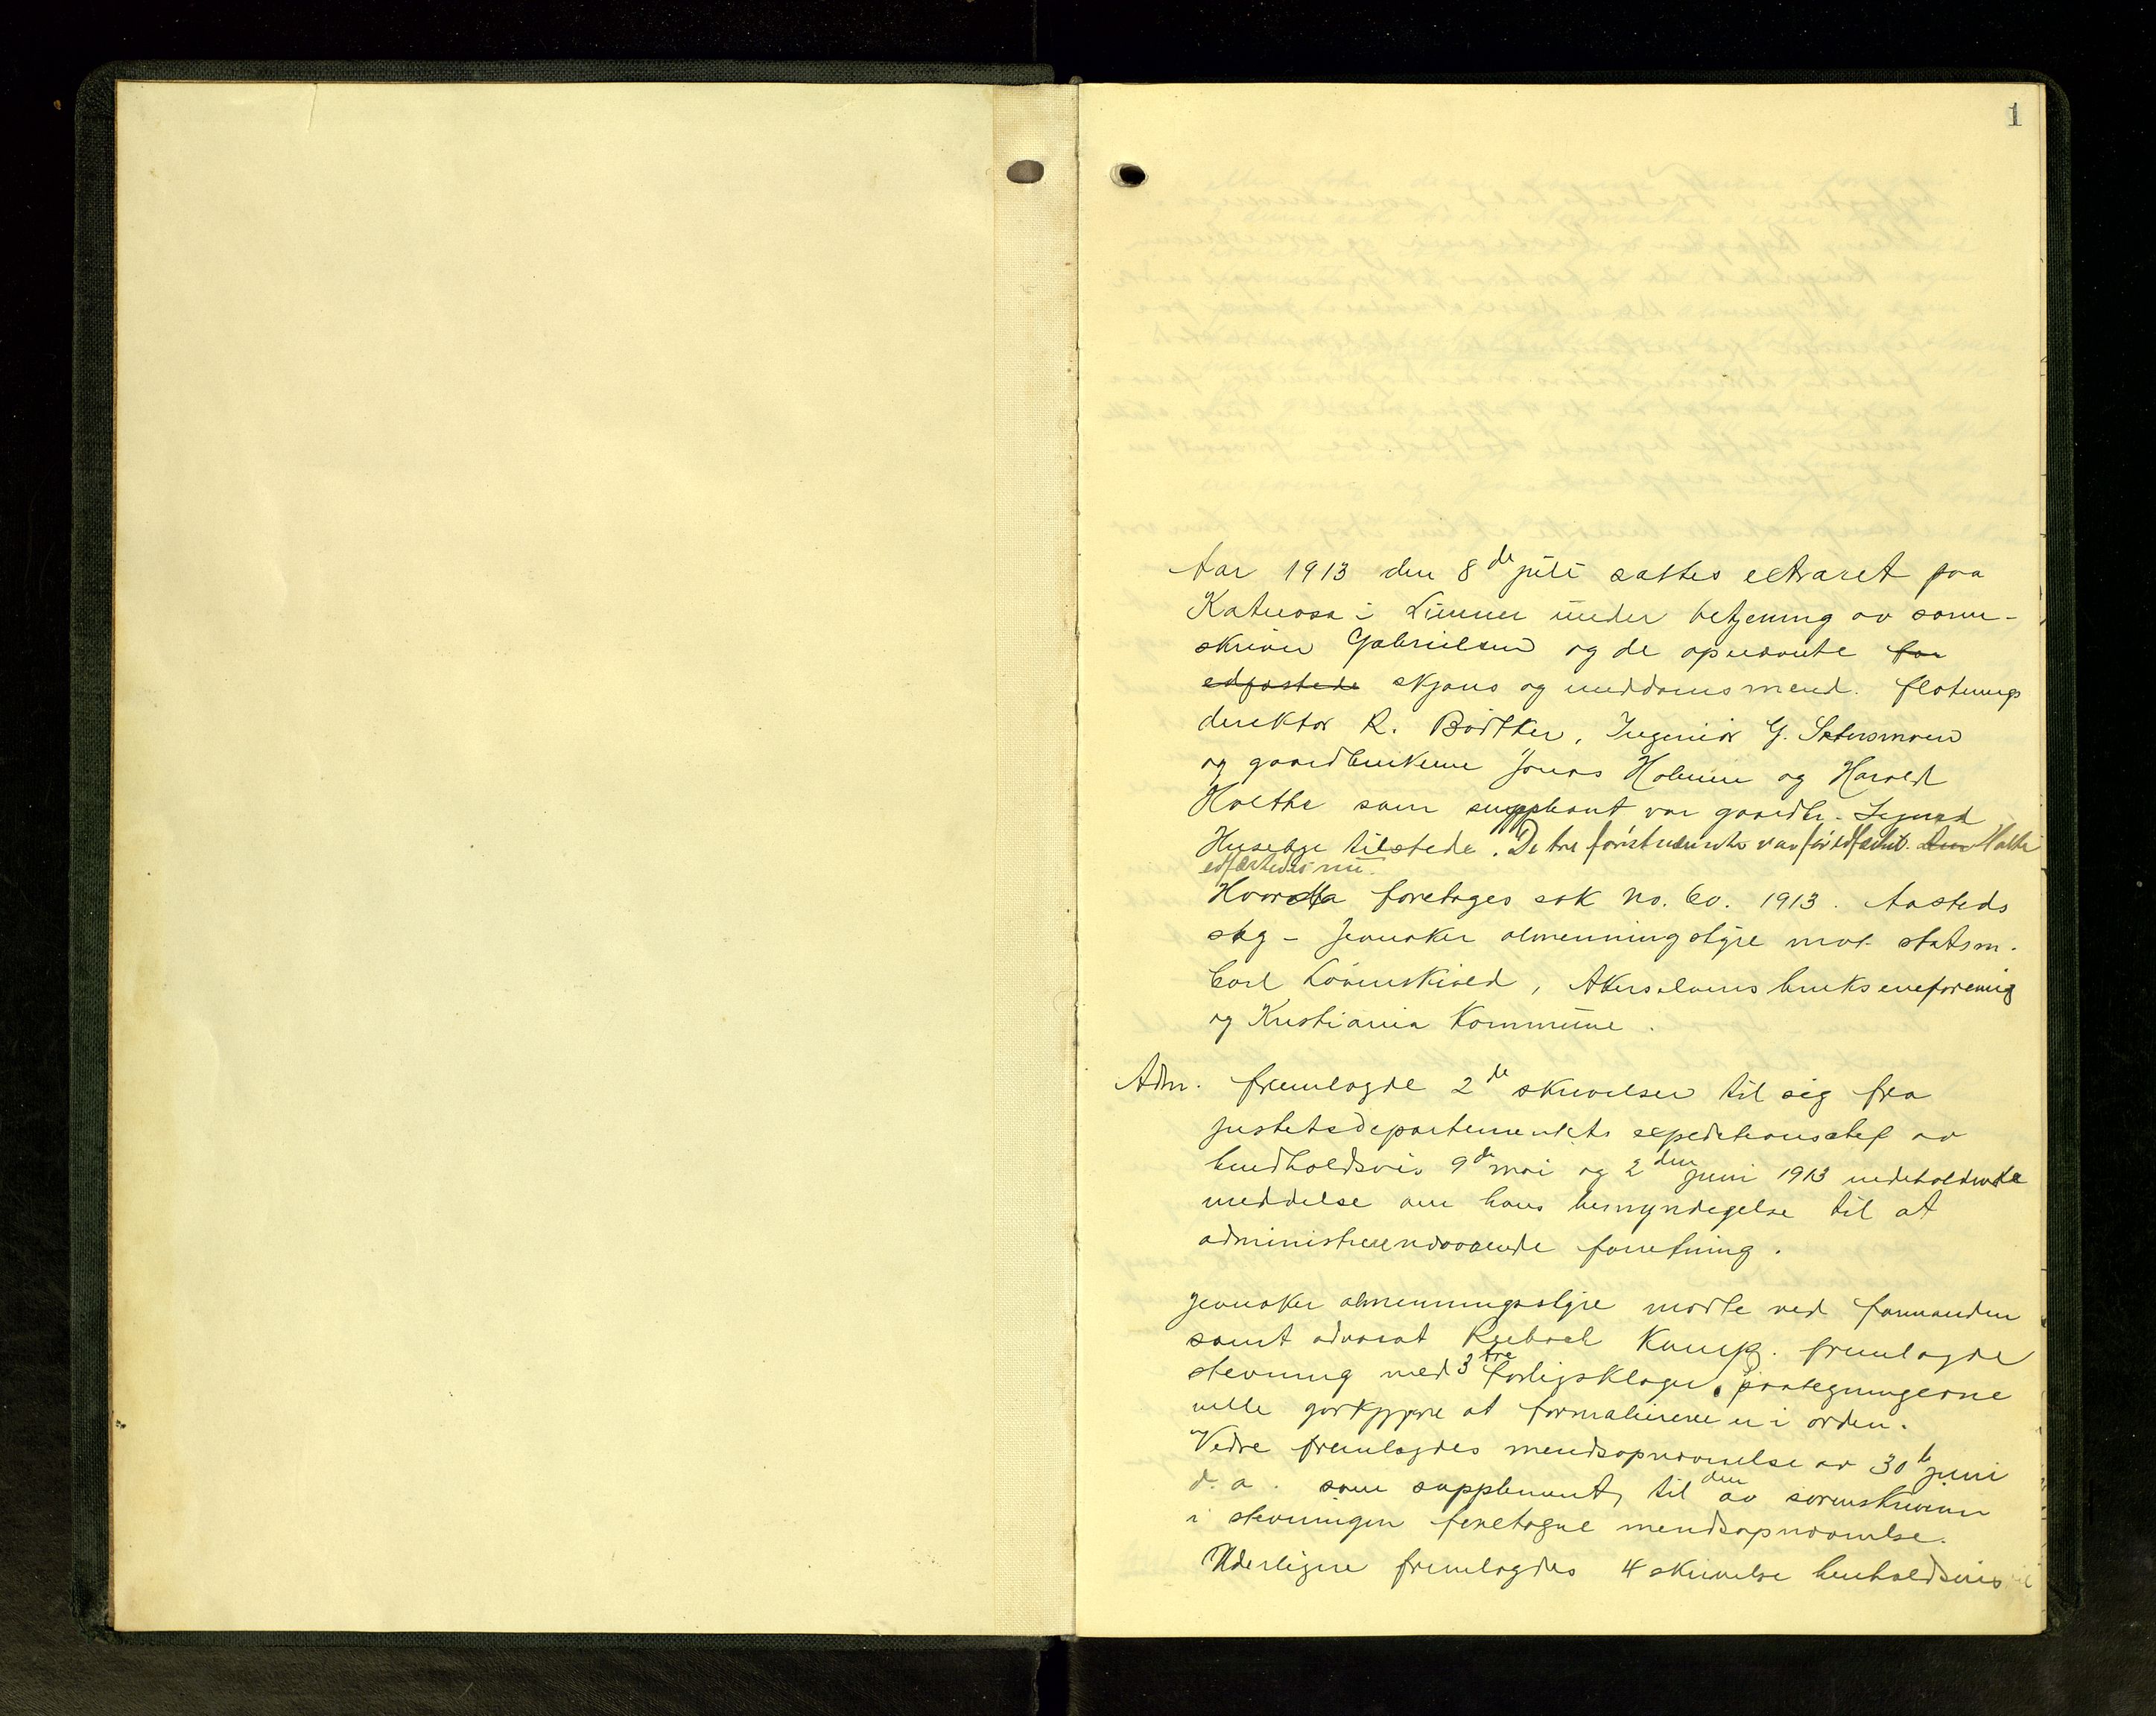 1
Aar 1913 den 8de juli sattes extraret paa
Katnosa i Lunner under betjening av soren-
skriver Gabrielsen og de opnævnte for
edfæstede skjøns og meddomsmænd. fløtnings
direktør R. Bødtker, Ingeniør G. Sætersmoen
og gaardbrukerne Jonas Holmen og Harald
Holthe som suppleant var gaardbr. Sigurd
Huseby tilstede. De tre førstnævnte var før edfæstet. Holthe
edfæstedes nu.
Hvorefter foretages sak No. 60. 1913. Aasteds
sag – Jevnaker almenningstyre mot statsm.
Carl Løvenskiold, Akerselvens brukseierforening
og Kristiania Kommune.
Adm. fremlagde 2de skrivelser til sig fra
justitsdepartementets expeditionschef av
henholdsvis 9de mai og 2den juni 1913 indeholdende
meddelse om hans bemyndigelse til at
administrere nærværende forretning.
Jevnaker almenningsstyre møtte ved formanden
samt advocat Kamp. fremlagde
stevning med 3 tre forligsklager, paategningerne
ville godtgjøre at formaliteterne er i orden.
Videre fremlagdes mendsopnævnelse av 30te juni
d. a. som supplement til den av sorenskriveren
i stevningen foretagne mendsopnævnelse.
Yderligere fremlagdes 4 skrivelse henholdsvis